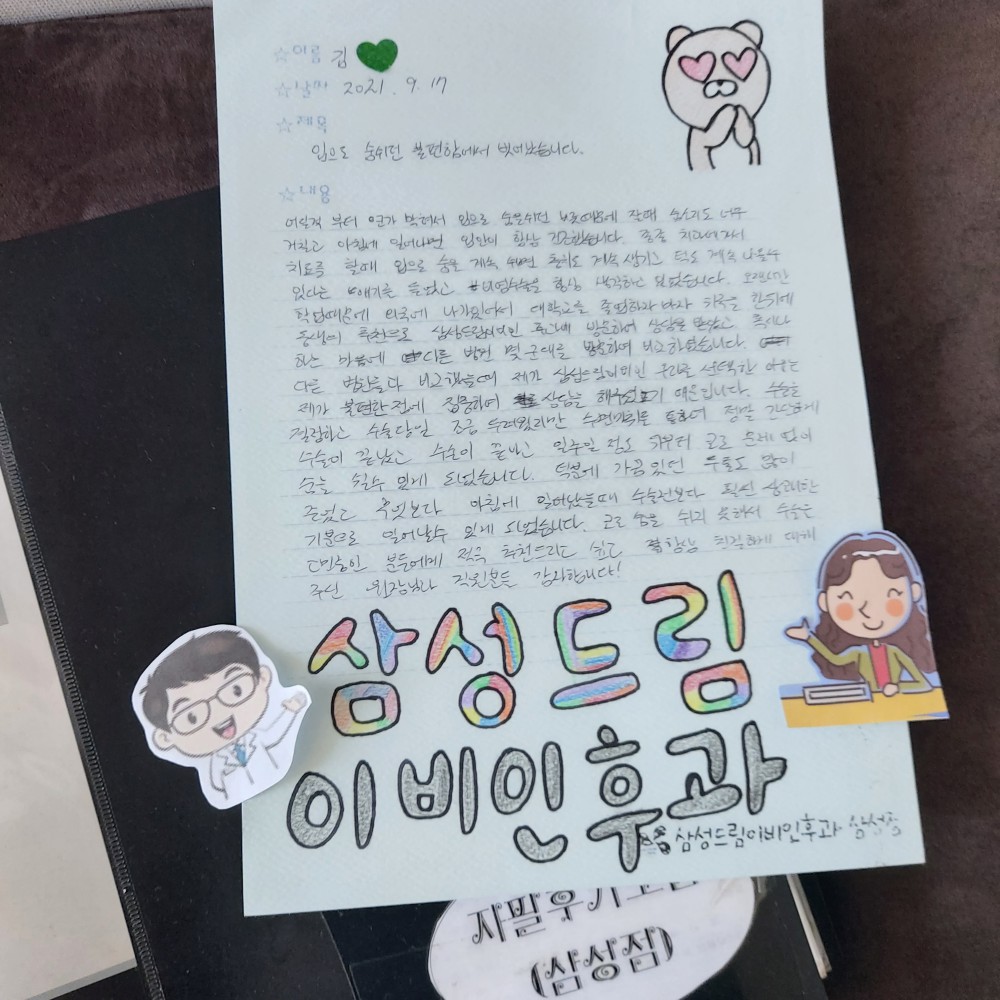 ☆이름 김
☆날짜 2021. 9. 17
☆제목
입으로 숨쉬던 불편함에서 벗어났습니다.
☆내용
어릴적 부터 먼가 막혀서 입으로 숨을쉬던 때문에 잘때 숨소리도 너무
거칠고 아침에 일어나면 입안이 항상 건조했습니다. 종종 치과에가서
치료를 할때 입으로 숨을 계속 쉬면 충치도 계속 생기고 턱도 계속 나올수
있다는 얘기를 들었고 비염수술을 항상 생각하고 있었습니다. 오랜시간
학업때문에 외국에 나가있어서 대학교를 졸업하자마자 귀국을 한뒤에
동생의 추천으로 삼성드림이비인후과에 방문하여 상담을 받았고 혹시나
하는 마음에 다른 병원 몇 군대를 방문하여 비교하였습니다.
다른 병원들과 비교했을때 제가 삼성드림이비인후과를 선택한 이유는
제가 불편한점에 집중하여 상담을 해주셨기 때문입니다. 수술을
결정하고 수술당일 조금 두려웠지만 수면마취를 통하여 정말 간단하게
수술이 끝났고 수술이 끝나고 일주일 정도 뒤부터 코로 문제 없이
숨을 쉴수 있게 되었습니다. 덕분에 가끔있던 두통도 많이
줄었고 무엇보다 아침에 일어났을때 수술전보다 훨씬 상쾌한
기분으로 일어날수 있게 되었습니다. 코로 숨을 쉬지 못해서 수술을
고민중인 분들에게 적극 추천드리고 싶고 항상 친절하게 대해
주신 원장님과 직원분들 감사합니다!
삼성드림
이비인후과
삼성드림이비인후과 삼성점
자발후기
(삼성점)